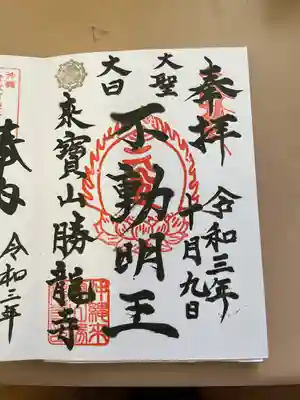 奉拝
令和三年
十月九日
大聖
不動明王
大日
東寶山勝龍寺
令和三年
沖縄